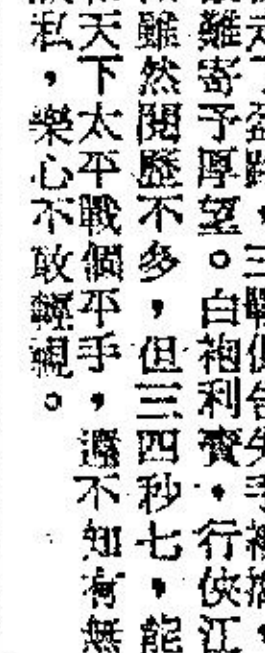 三戰俱告失手
難寄予厚望。白袍利賓，行俠江
雖然閱歷不多，但三四秒七，能
天下太平戰個平手，還不知有無
私，樂心不敢輕視。